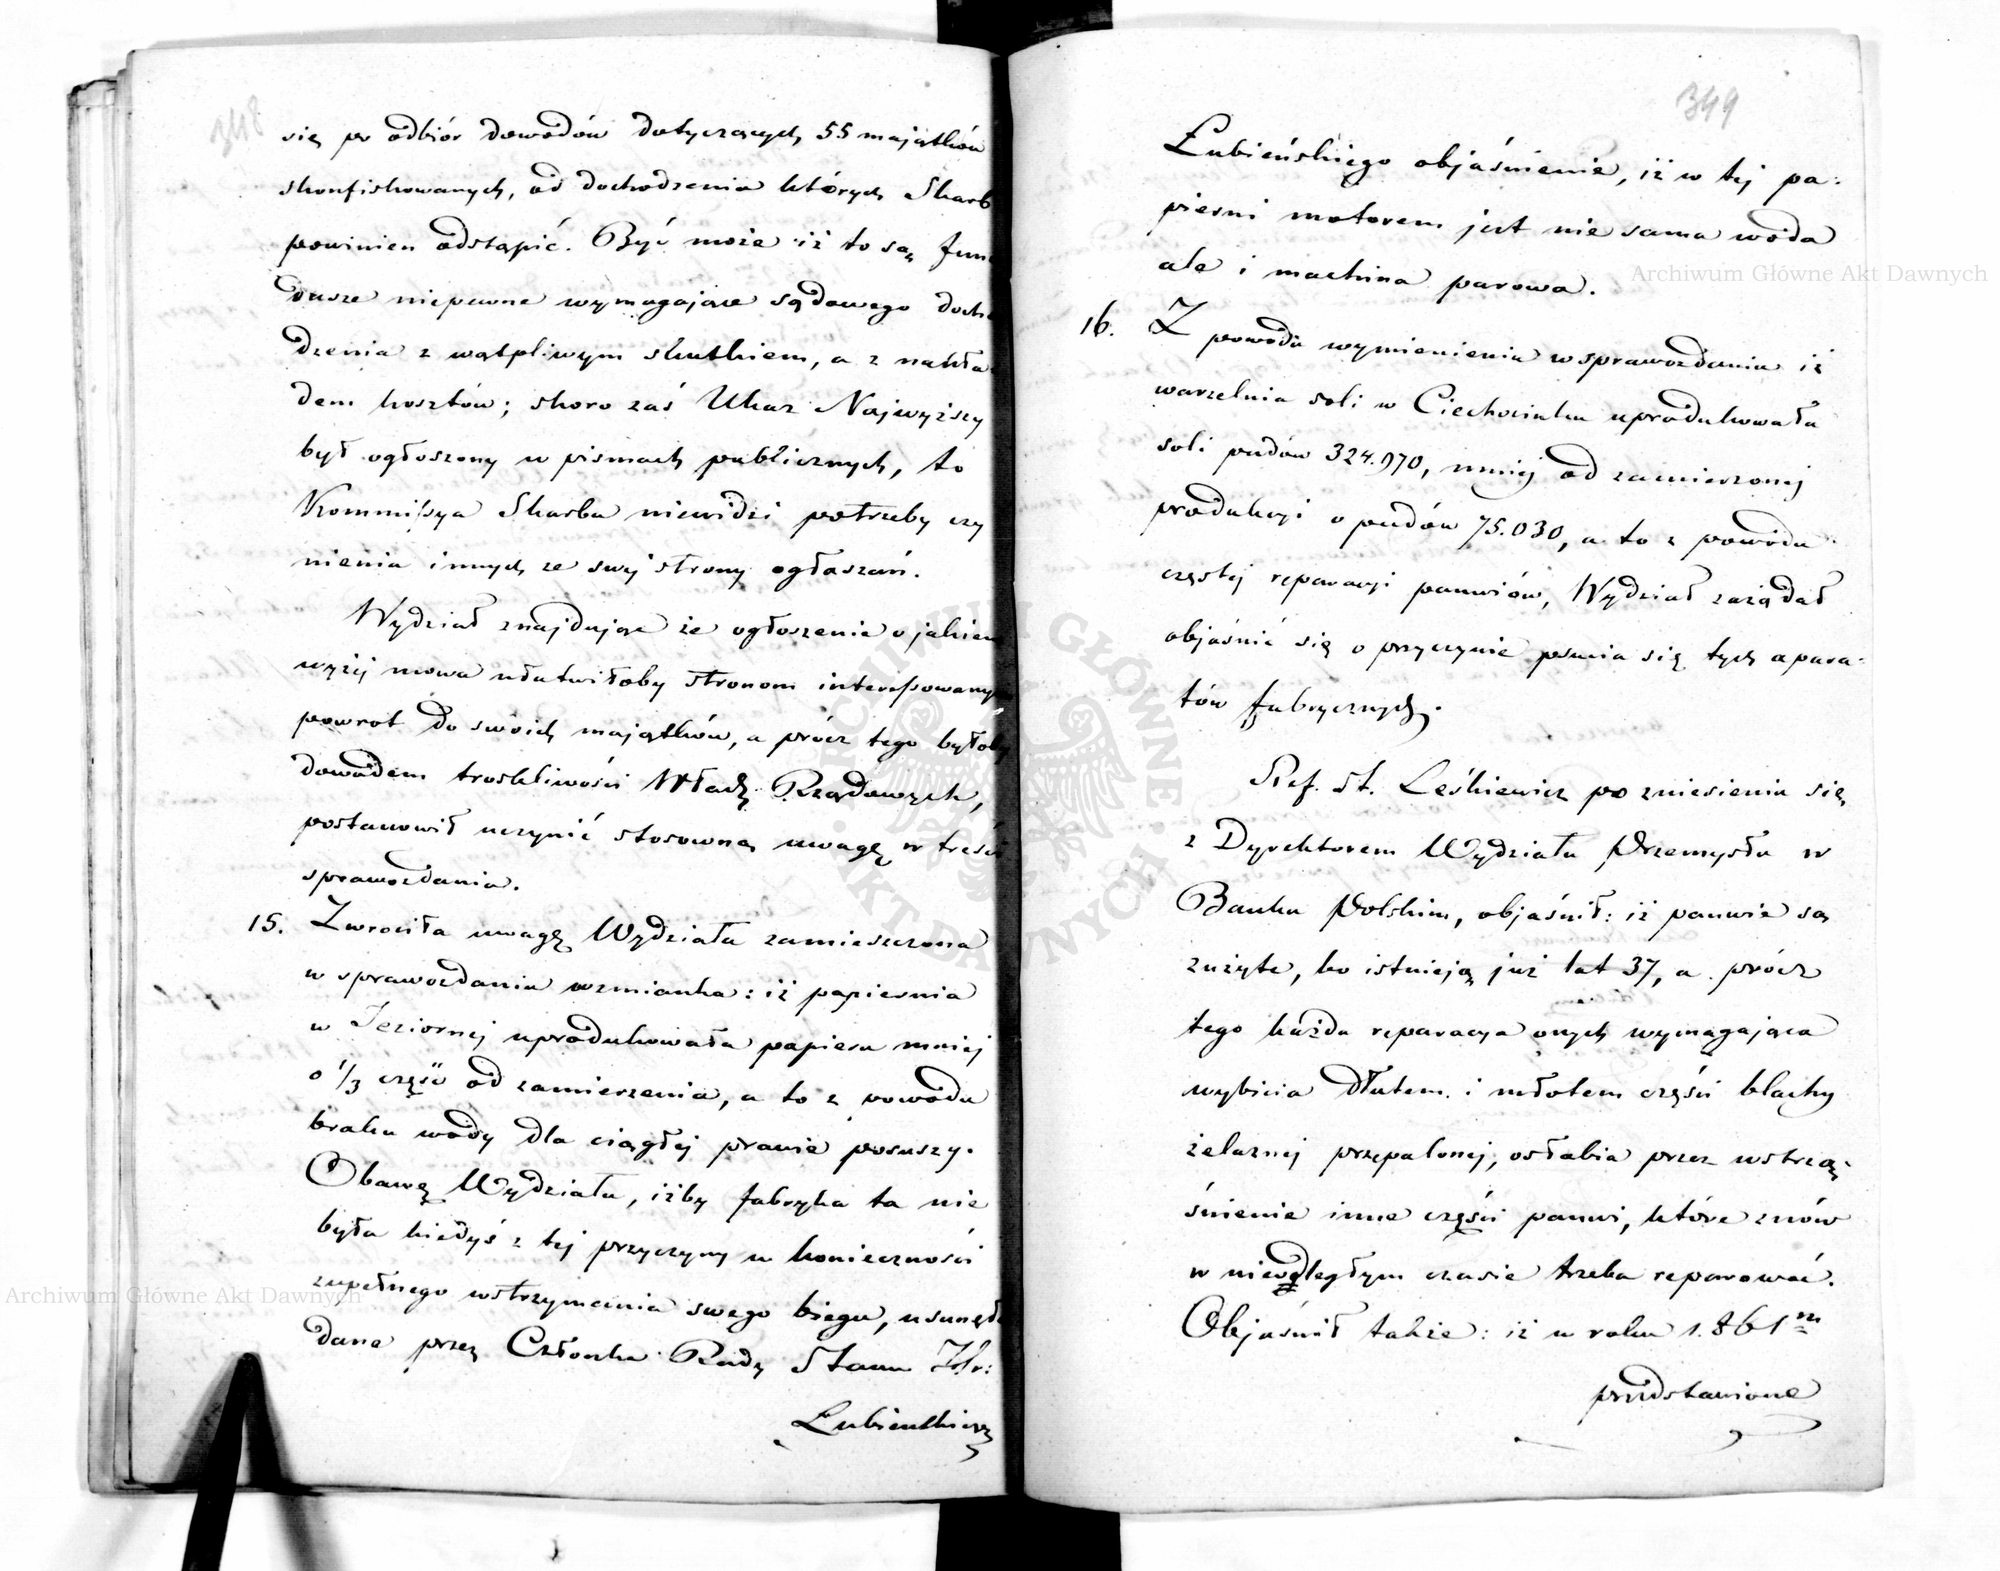 348
się po odbiór dowodów dotyczących 55 majątków
skonfiskowanych, od dochodzenia których Skarb
powinien odstąpić. Być może iż to są fun
dusze niepewne wymagające sądowego docho
dzenia z wątpliwym skutkiem, a z nakła
dem kosztów; skoro zaś Ukaz Najwyższy
był ogłoszony w pismach publicznych, to
Kommissya Skarbu niewidzi potrzeby czy
nienia innych ze swej strony ogłaszań.
Wydział znajdując że ogłoszenie o jakiem
wyżej mowa ułatwiłoby stronom interessowanym
powrot do swoich majątków, a prócz tego byłoby
dowodem troskliwości Władz Rządowych,
postanowił uczynić stosowną uwagę w treści
sprawozdania.
15. Zwróciła uwagę Wydziału zamieszczona
w sprawozdaniu wzmianka: iż papiernia
w Jeziornej uprodukowała papieru mniej
o 1/3 część od zamierzenia, a to z powodu
braku wody dla ciągłej prawie posuszy.
Obawę Wydziału, iżby fabryka ta nie
była kiedyś z tej przyczyny w konieczności
zupełnego wstrzymania swego biegu, usunęło
dane przez Członka Rady Stanu Hr:
Łubieńskiego
349
Łubieńskiego objaśnienie, iż w tej pa-
pierni motorem jest nie sama woda
ale i machina parowa.
16. Z powodu wymienienia w sprawozdaniu iż
warzelnia soli w Ciechocinku uprodukowała
soli pudów 324.970, mniej od zamierzonej
produkcyi o pudów 75.030, a to z powodu
częstej reparacyi panwiów, Wydział zażądał
objaśnić się o przyczynie psucia się tych apara-
tów fabrycznych.
Ref. St. Leśkiewicz po zniesieniu się
z Dyrektorem Wydziału Przemysłu w
Banku Polskim, objaśnił: iż panwie są
zużyte, bo istnieją już lat 37, a prócz
tego każda reparacya onych wymagająca
wybicia dłutem i młotem części blachy
żelaznej przepalonej, osłabia przez wstrzą-
śnienie inne części panwi, które znów
w nieodległym czasie trzeba reparować.
Objaśnił także: iż w roku 1861m
przedstawione
Archiwum Główne Akt Dawnych
Archiwum Główne Akt Dawnych
ARCHIWUM GŁÓWNE AKT DAWNYCH